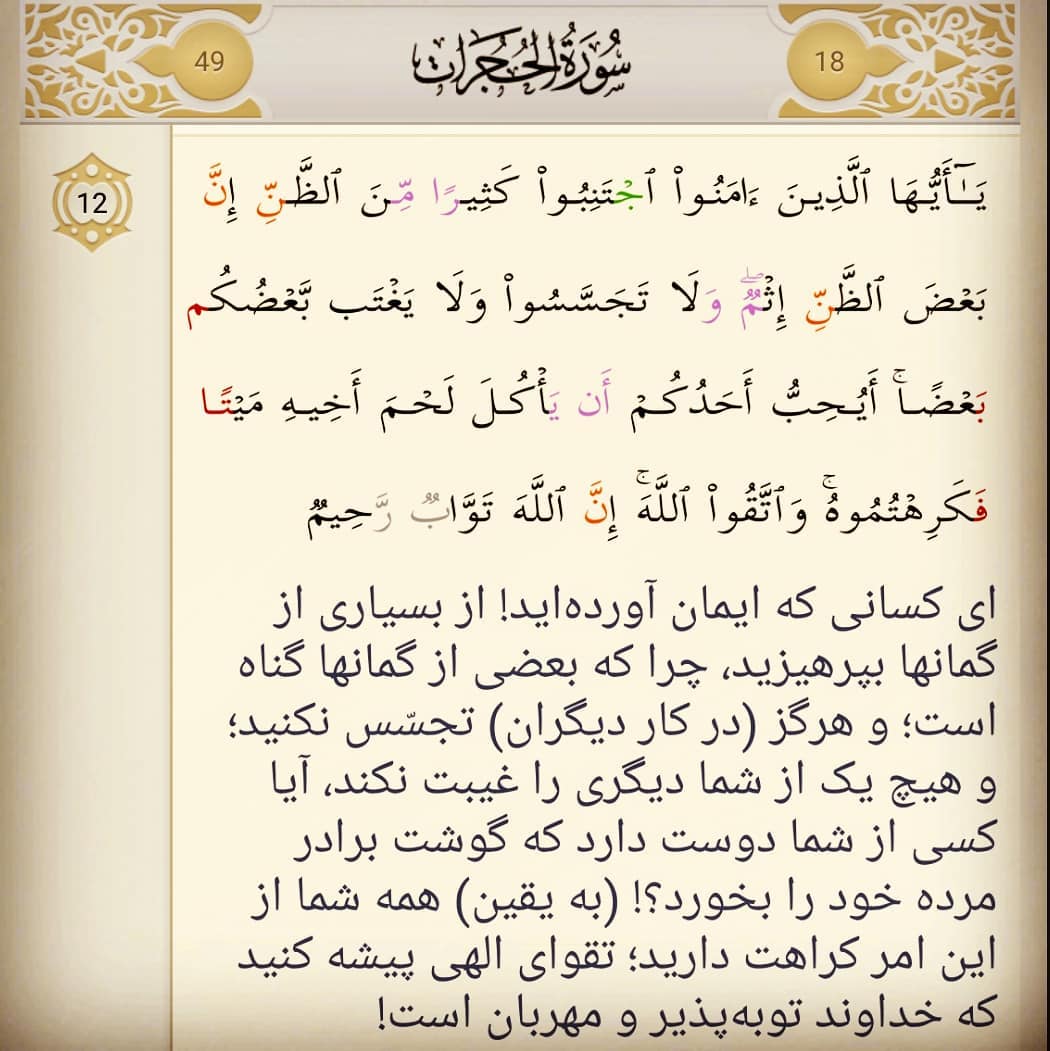 49
سُورَةُ الحُجرَات
18
12
يَـٰٓأَيُّهَا ٱلَّذِينَ ءَامَنُوا۟ ٱجْتَنِبُوا۟ كَثِيرًا مِّنَ ٱلظَّنِّ إِنَّ
بَعْضَ ٱلظَّنِّ إِثْمٌۖ وَلَا تَجَسَّسُوا۟ وَلَا يَغْتَب بَّعْضُكُم
بَعْضًاۚ أَيُحِبُّ أَحَدُكُمْ أَن يَأْكُلَ لَحْمَ أَخِيهِ مَيْتًا
فَكَرِهْتُمُوهُۚ وَٱتَّقُوا۟ ٱللَّهَۚ إِنَّ ٱللَّهَ تَوَّابٌ رَّحِيمٌ
ای کسانی که ایمان آورده‌اید! از بسیاری از
گمانها بپرهیزید، چرا که بعضی از گمانها گناه
است؛ و هرگز (در کار دیگران) تجسّس نکنید؛
و هیچ یک از شما دیگری را غیبت نکند، آیا
کسی از شما دوست دارد که گوشت برادر
مرده خود را بخورد؟! (به یقین) همه شما از
این امر کراهت دارید؛ تقوای الهی پیشه کنید
که خداوند توبه‌پذیر و مهربان است!